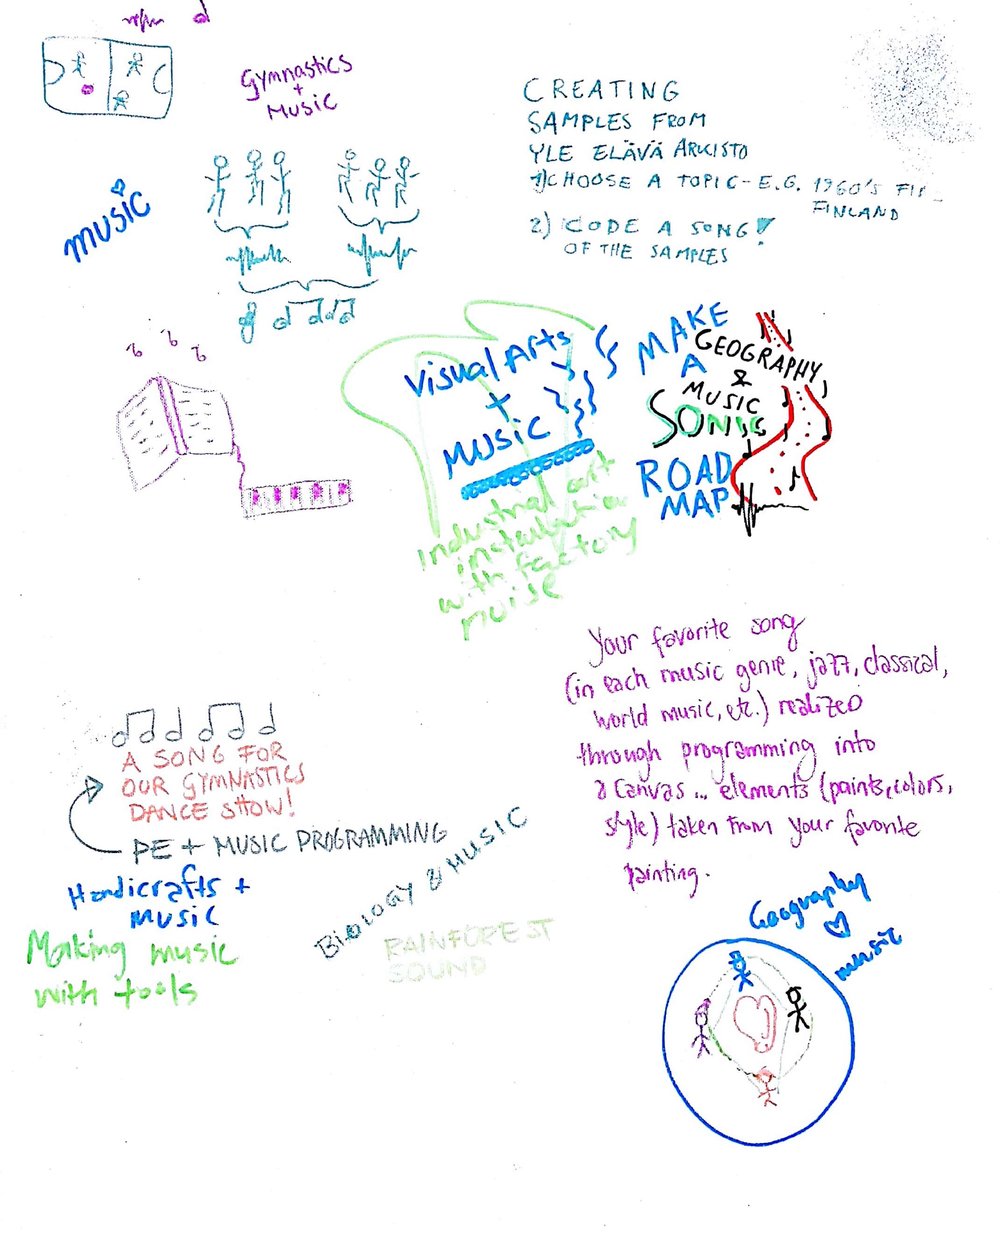 Gymnastics
+
Music
CREATING
SAMPLES FROM
YLE ELÄVÄ ARKISTO
1) CHOOSE A TOPIC - E.G. 1960'S FI-
FINLAND
2) CODE A SONG!
OF THE SAMPLES
music
Visual Arts
+
Music
Industrial art
installation
with factory
noise
MAKE
A
GEOGRAPHY
&
MUSIC
SONIC
ROAD
MAP
Your favorite song
(in each music genre, jazz, classical,
world music, etc.) realized
through programming into
a canvas... elements (paints, colors,
style) taken from your favorite
painting.
A SONG FOR
OUR GYMNASTICS
DANCE SHOW!
PE + MUSIC PROGRAMMING
Handicrafts +
Music
Making music
with tools
BIOLOGY & MUSIC
RAINFOREST
SOUND
Geography
music